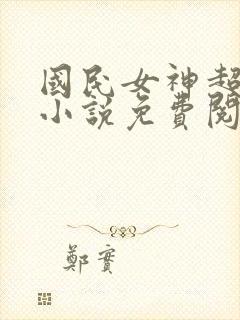 國民女神超
小說免費閱
鄭實